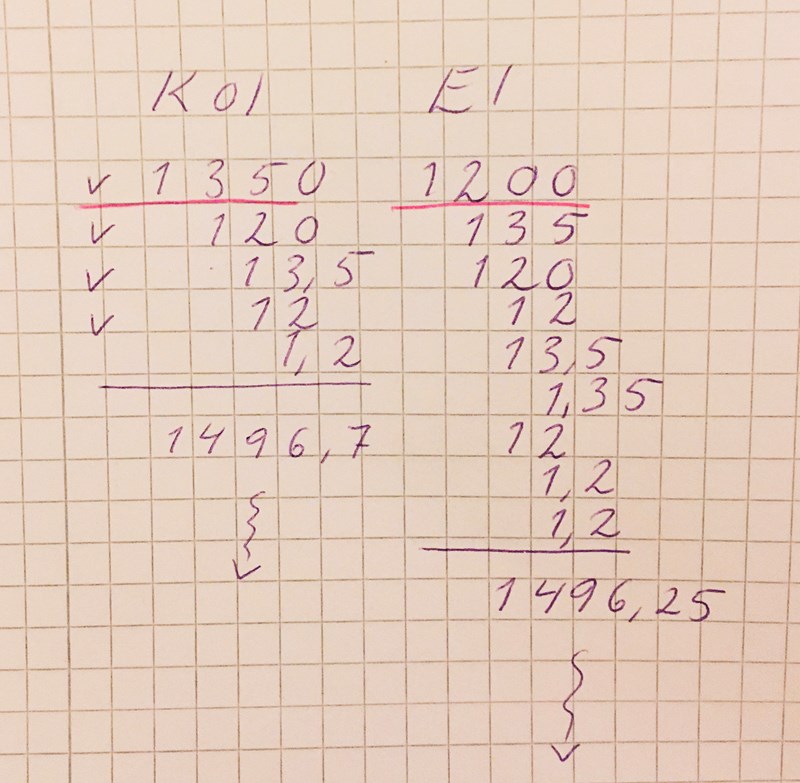 K01
✓ 1350
✓ 120
✓ 13,5
✓ 12
1,2
1496,7
E1
1200
135
120
12
13,5
1,35
12
1,2
1,2
1496,25